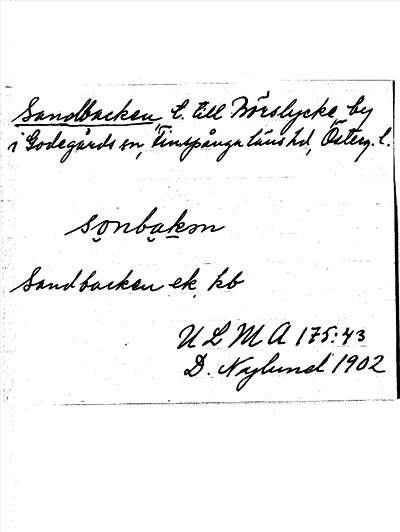 Sandbacken, t. till Börslycke by
i Godegårds sn, Finspånga läns hd, Österg. l.
sọnbạkən
Sandbacken ek, kb
ULMA 175:43
D. Nylund 1902